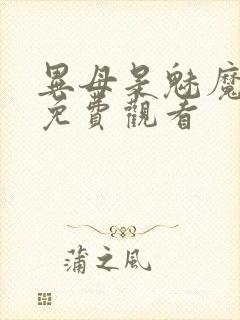 異母呆魅魔
免費觀看
蒲之風